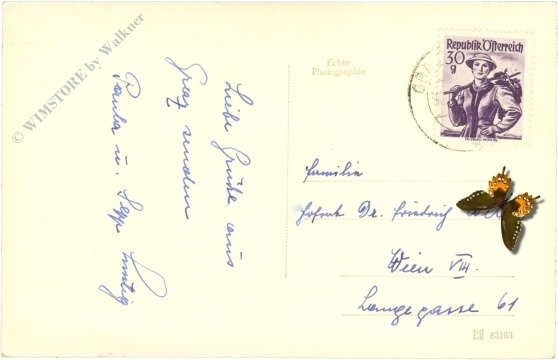 © WIMSTORE by Walkner
Liebe Grüße aus
Graz senden
Paula u. Sepp
Echte
Photographie
Republik Österreich
30
g
GRAZ
Familie
Hofrat Dr. Friedrich
Wien VIII.
Langegasse 61
83163